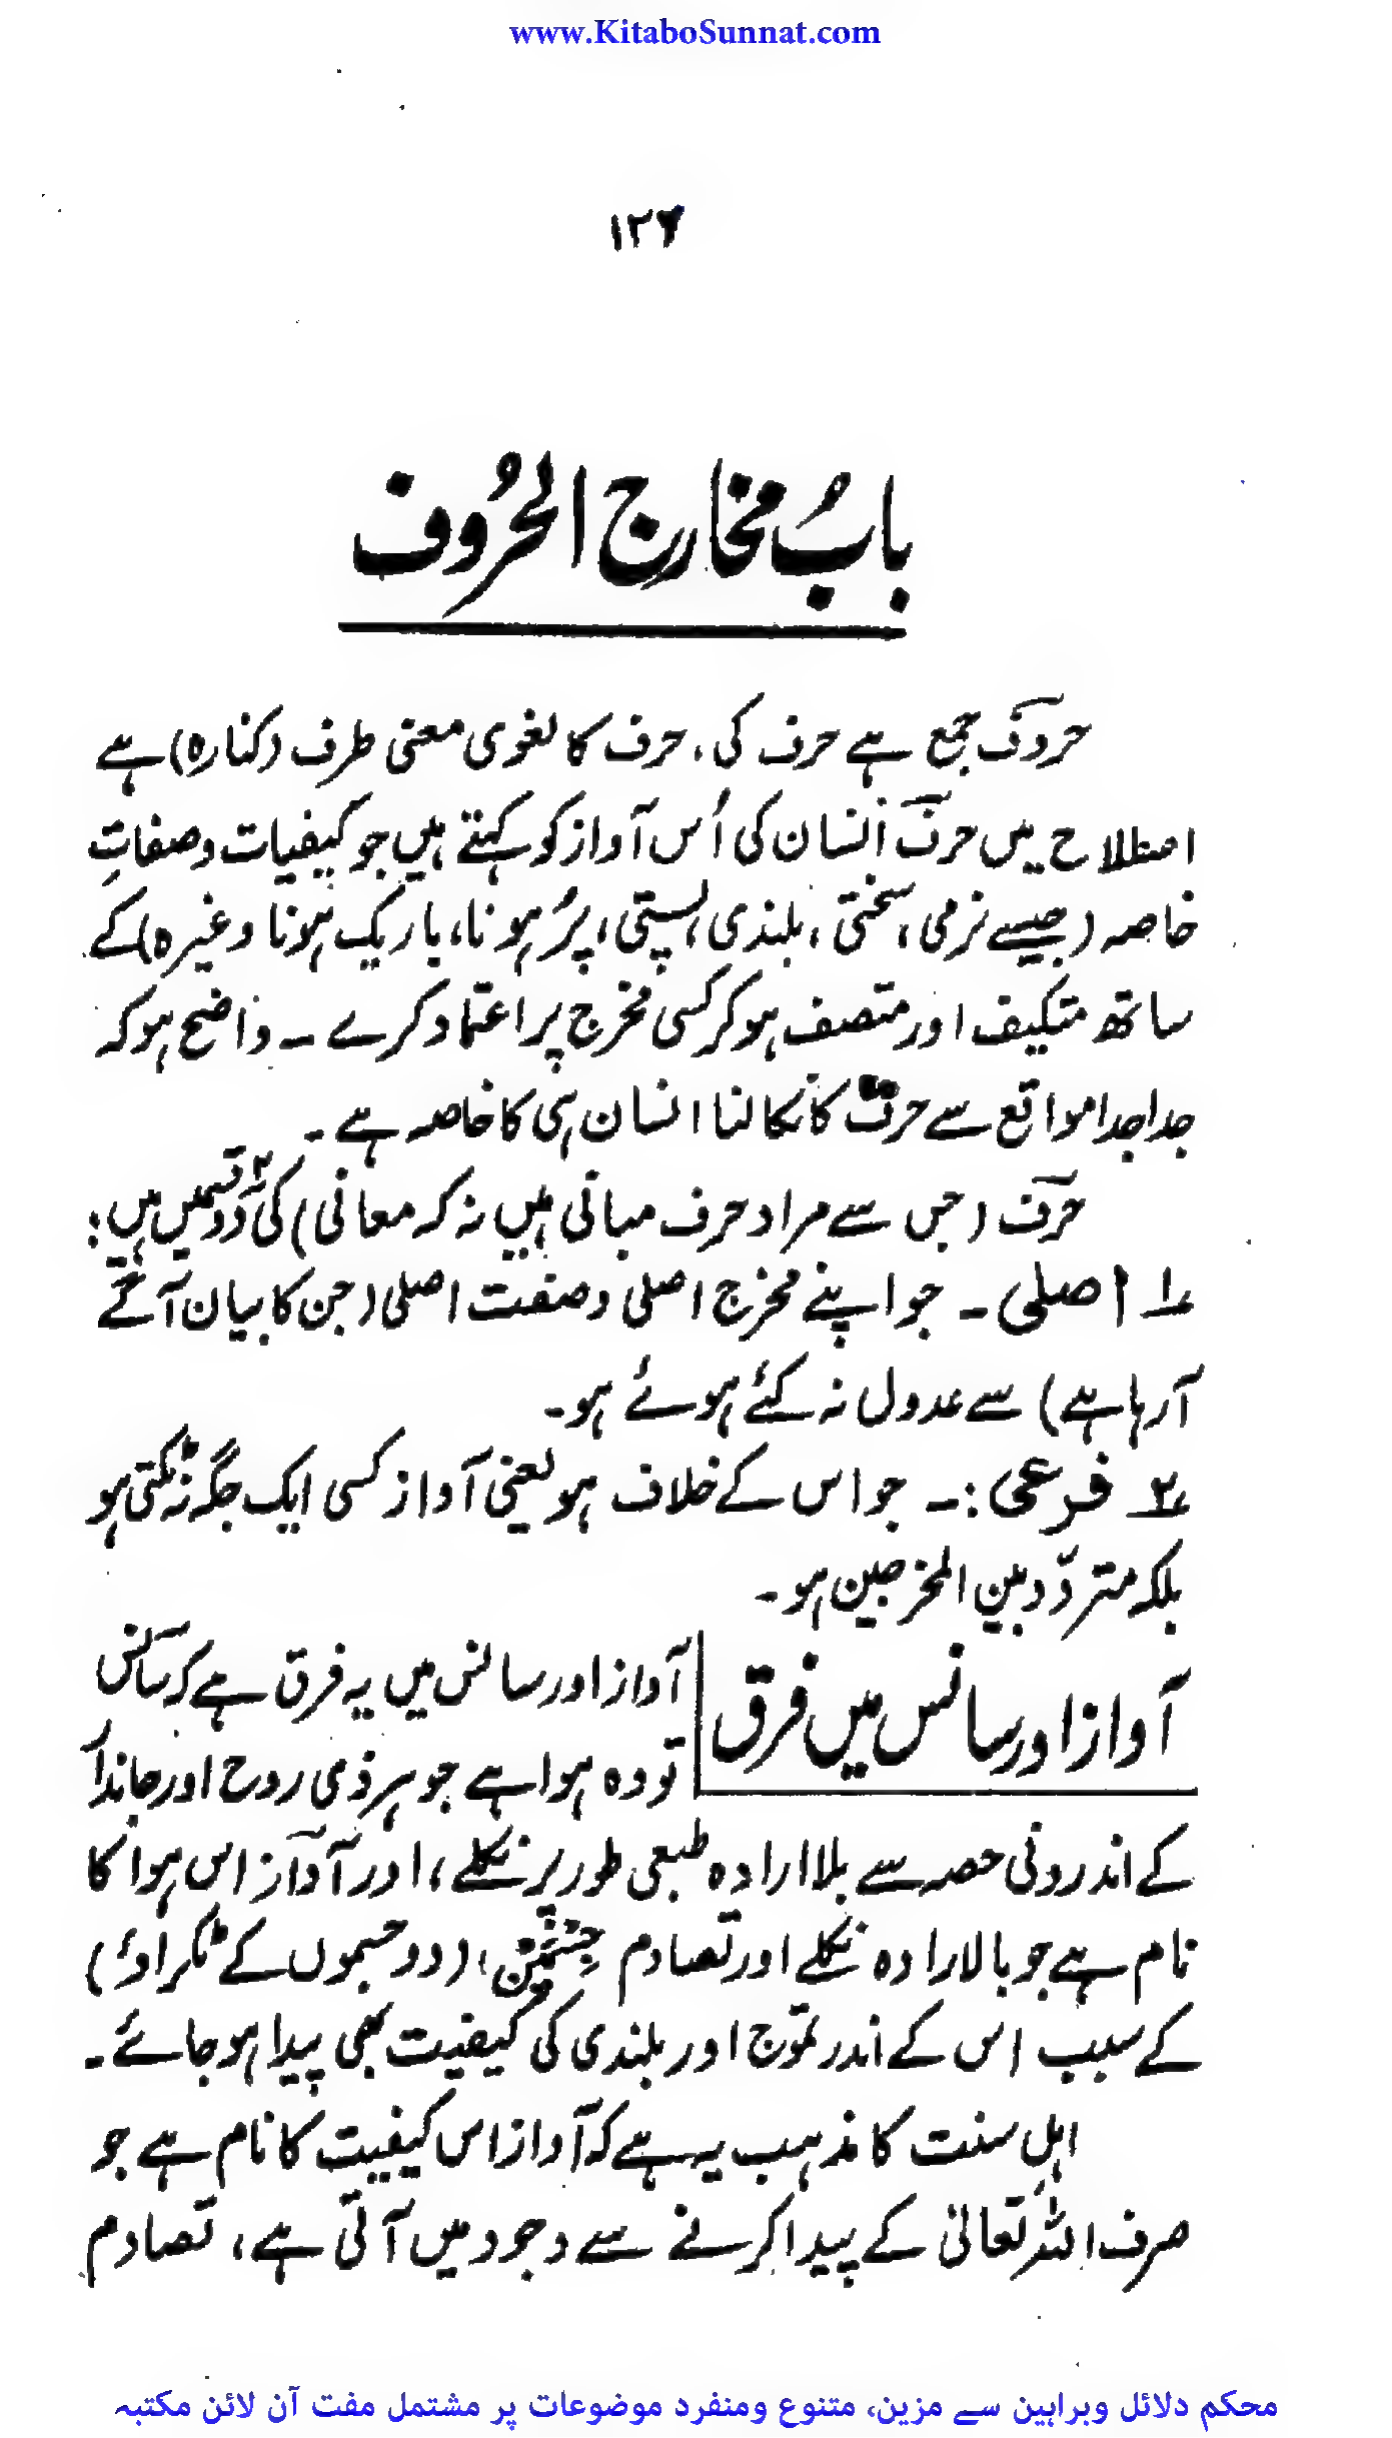 www.KitaboSunnat.com
۱۲۶
بابُ مخارج الحُروف
حروف جمع ہے حرف کی، حرف کا لغوی معنی طرف (کنارہ) ہے
اصطلاح میں حرف انسان کی اُس آواز کو کہتے ہیں جو کیفیات وصفاتِ
خاصہ (جیسے نرمی، سختی، بلندی، پستی، پُر ہونا، باریک ہونا وغیرہ) کے
ساتھ متکیف اور متصف ہو کر کسی مخرج پر اعتماد کرے ۔ واضح ہو کہ
جدا جدا مواقع سے حرف کا نکالنا انسان ہی کا خاصہ ہے ۔
حرف (جس سے مراد حرف مبانی ہیں نہ کہ معانی) کی دو۲ قسمیں ہیں :
۱؎ اصلی ۔ جو اپنے مخرج اصلی وصفت اصلی (جن کا بیان آگے
آرہا ہے) سے عدول نہ کئے ہوئے ہو۔
۲؎ فرعی :۔ جو اس کے خلاف ہو یعنی آواز کسی ایک جگہ نہ ٹکتی ہو
بلکہ متردّد بین المخرجین ہو۔
آواز اور سانس میں فرق
آواز اور سانس میں یہ فرق ہے کہ سانس
تو وہ ہوا ہے جو ہر ذی روح اور جاندار
کے اندرونی حصہ سے بلا ارادہ طبعی طور پر نکلے، اور آواز اس ہوا کا
نام ہے جو بالارادہ نکلے اور تصادم جِسْمَیْن، (دو جسموں کے ٹکراؤ)
کے سبب اس کے اندر تموّج اور بلندی کی کیفیت بھی پیدا ہو جائے ۔
اہلِ سنت کا مذہب یہ ہے کہ آواز اس کیفیت کا نام ہے جو
صرف اللہ تعالیٰ کے پیدا کرنے سے وجود میں آتی ہے، تصادم
محکم دلائل وبراہین سے مزین، متنوع ومنفرد موضوعات پر مشتمل مفت آن لائن مکتبہ